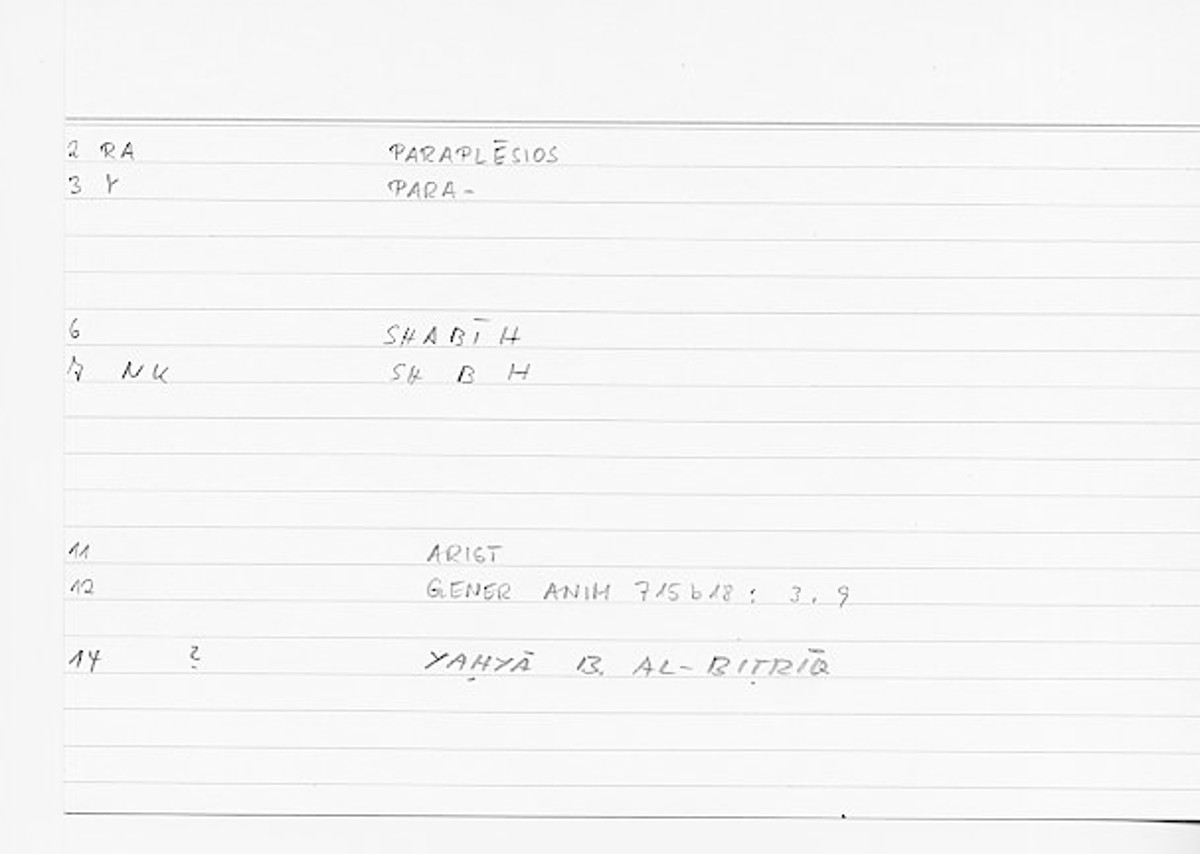 2 RA PARAPLĒSIOS
3 Y PARA-
6 SHABĪH
7 NK SH B H
11 ARIST
12 GENER ANIM 715b18: 3.9
14 ? YAḤYĀ B. AL-BIṬRĪQ